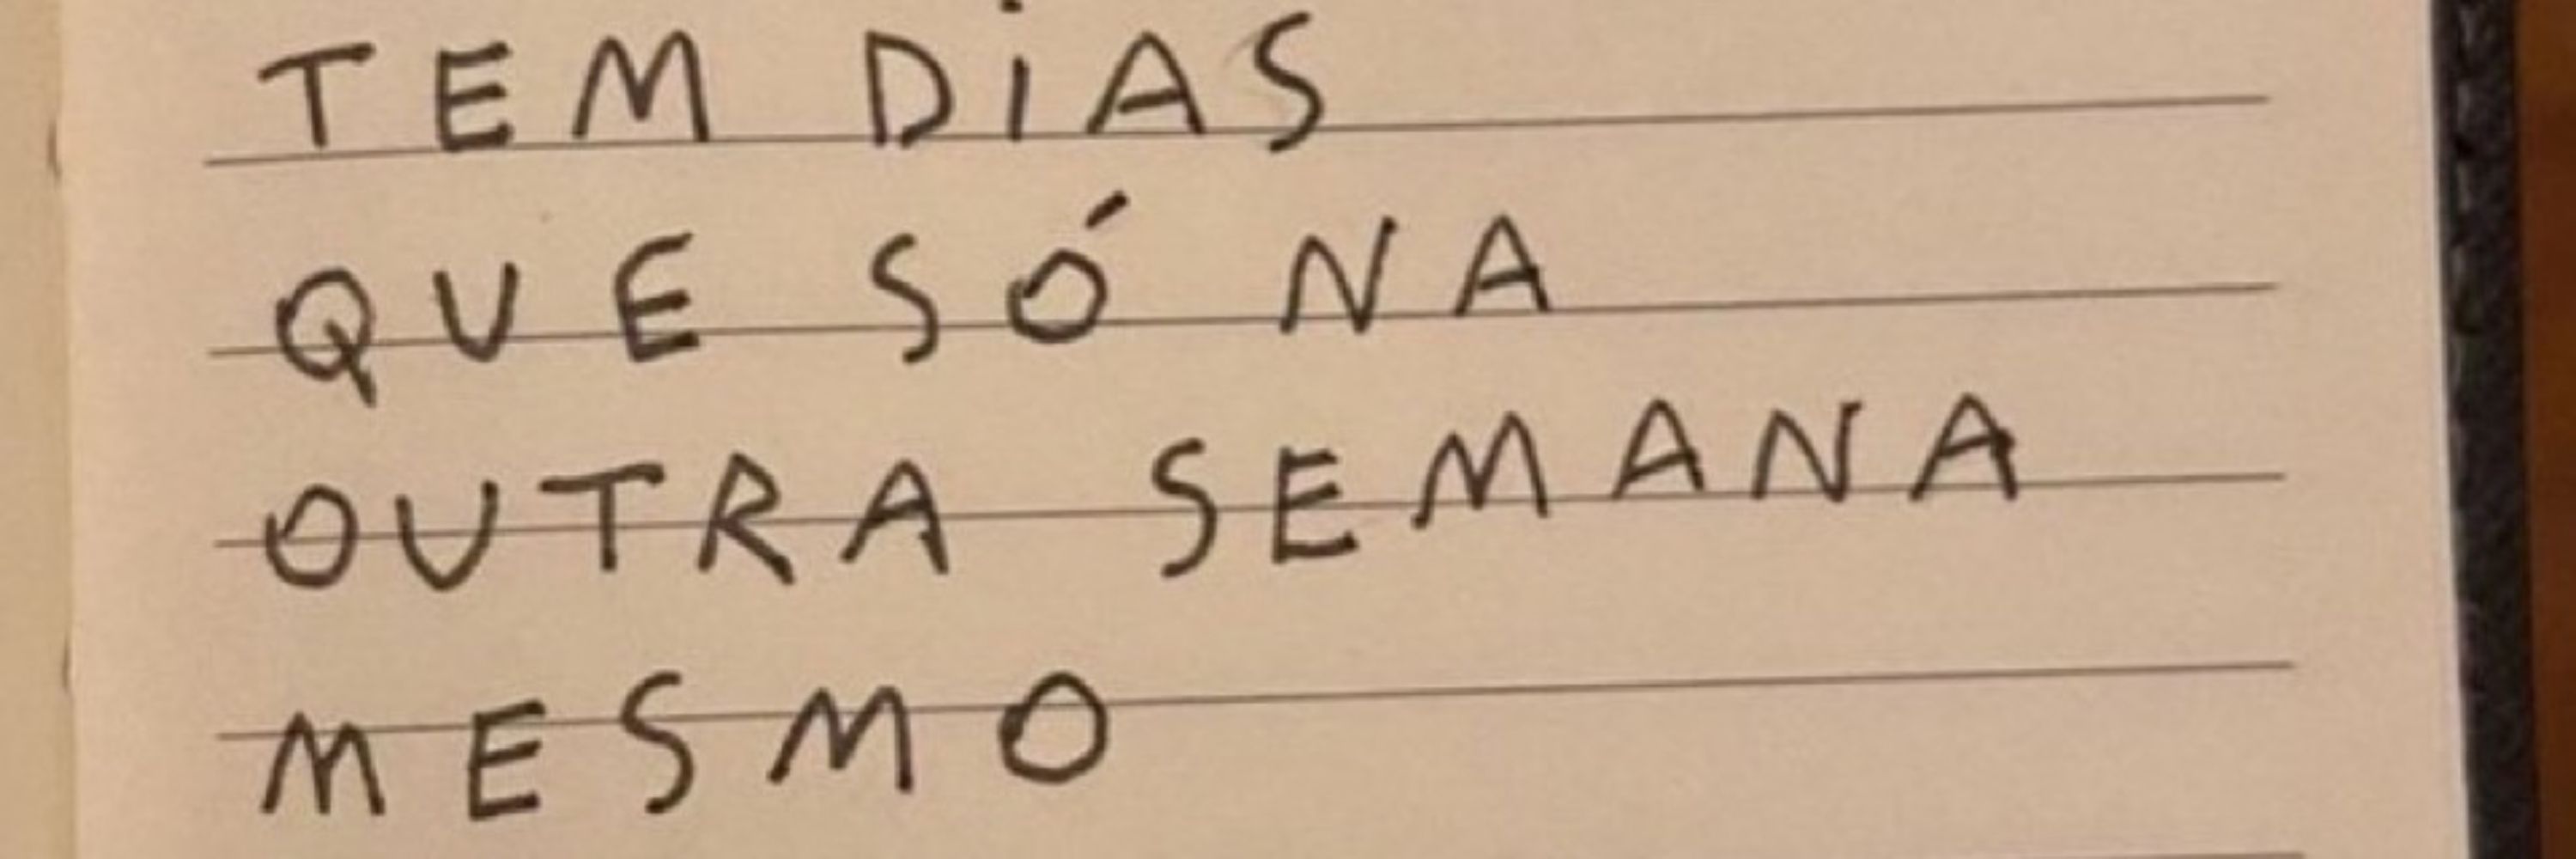 TEM DiAS
QUE SÓ NA
OUTRA SEMANA
MESMO